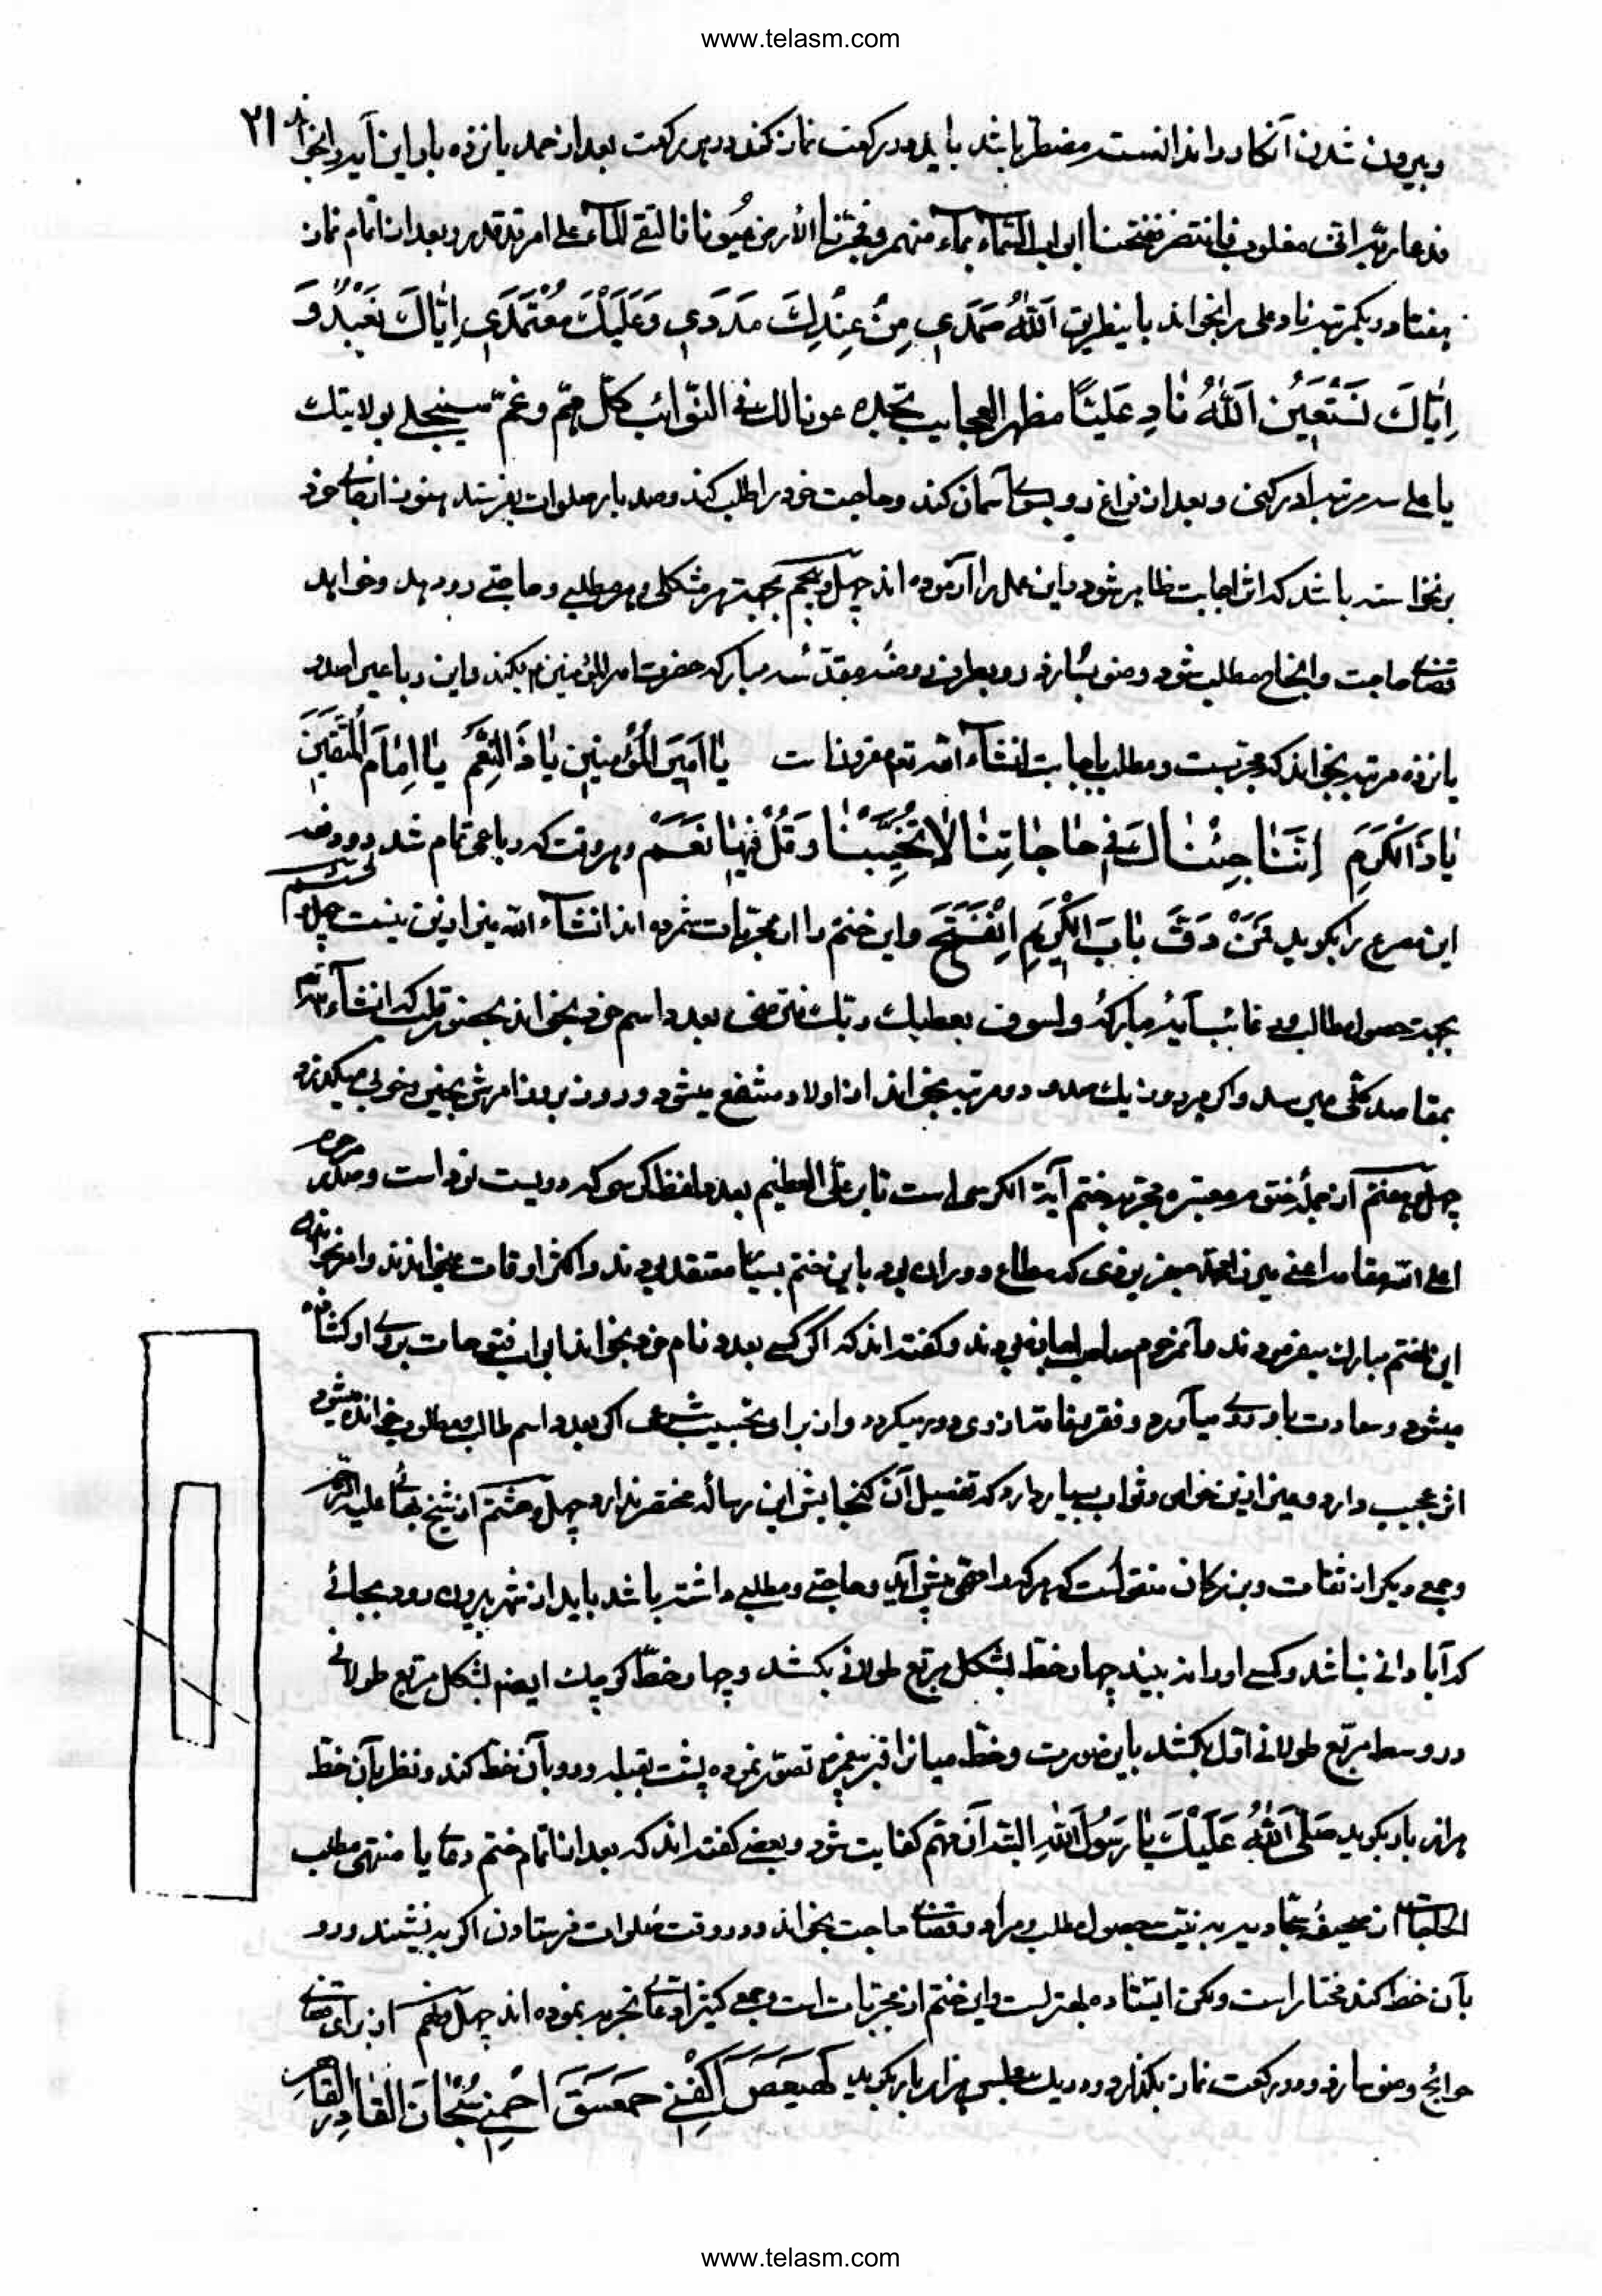 www.telasm.com
۲۱
و بیرون شدن آنکار در اندانسته مضطر باشد باید دو رکعت نماز کند در هر رکعت بعد از حمد پانزده بار این آیه را بخواند
فدعا ربه انی مغلوب فانتصر ففتحنا ابواب السّماء بماء منهمر و فجّرنا الأرض عُیونا فالتقی المآء علی امر قد قدر و بعد از اتمام نماز
هفتاد و یکمرتبه ناد علی را بخواند باینطریق اَللهُ صَمَدی مِنْ عِنْدِكَ مَدَدی وَعَلَیْكَ مُعْتَمَدی اِیّاكَ نَعْبُدُ وَ
اِیّاكَ نَسْتَعینُ اَللهُ نادِ عَلیّاً مظهر العجایب تجده عونا لك فی النّوائب کلّ همّ و غمّ سینجلی بولایتك
یا علی سه مرتبه ادرکنی و بعد از فراغ رو بسوی آسمان کند و حاجت خود را طلب کند و صد بار صلوات بفرستد هنوز از جای خود
برنخواسته باشد که اثر اجابت ظاهر شود و این عمل را آزموده اند چهل و پنجم بجهت هر مشکلی و هر مطلبی و حاجتی رو دهد و خواهد
قضای حاجت و انجاح مطلب شود وضو بسازد و رو بطرف روضه مقدّسه مبارکه حضرت امیرالمؤمنین ع بکند و این رباعی را صد و
پانزده مرتبه بخواند که مجربست و مطلب باجابت انشاء الله تع مقرونست یا اَمیرَ الْمُؤْمِنینَ یا ذَا النِّعَمْ یا اِمامَ الْمُتَّقینَ
یا ذَا الْکَرَمِ اِنَّنا جِئْناكَ فی حاجاتِنا لا تُخَیِّبْنا وَ قُلْ فیها نَعَمْ و هر وقت که رباعی تمام شد دو دفعه
این مصرع را بگوید مَنْ دَقَّ بابَ الْکَریمِ اِنْفَتَحَ و این ختم را از مجربات شمرده اند انشآء الله بیزاد بن نیست چهل و ششم
بجهت حصول مطالب و غائب آیه مبارکه ولسوف یعطیك ربّك فترضی بعدد اسم خود بخواند بحضور قلب که انشآء الله
بمقاصد کلّی میرسد و اگر هر روز یك صد و دو مرتبه بخواند از اولاد منتفع میشود و روز بروز امرش بخیر و خوبی میگذرد
چهل و هفتم از جمله ختوم معتبره مجرّبه ختم آیة الکرسی است تا بر علی العظیم بعدد لفظ کرسی که دویست نود است و مرحوم
اعلی الله مقامه اعنی میرزا محمد که مطاع دوران بود باین ختم بسیار معتقد بودند و اکثر اوقات میخواندند و امر بخواندن
این ختم مبارك میفرمودند و آنمرحوم صاحب اجازه بودند و گفته اند که اگر کسی بعدد نام خود بخواند ابواب فتوحات بروی او گشاده
میشود و سعادت باو روی میآورد و فقر و فاقه از وی دور میگردد و از برای تحبیب شرعی اگر بعدد اسم طالب و مطلوب خوانده میشود
اثر عجیب دارد و غیر از این خواص و ثواب بسیار دارد که تفصیل آن گنجایش این رساله مختصر ندارد چهل و هشتم از شیخ بهائی علیه الرحمه
و جمعی دیگر از ثقات و بزرگان منقولست که هر که را مهمّی پیش آید و حاجتی و مطلبی داشته باشد باید از شهر بیرون رود بجائی
که آبادانی نباشد و کسی او را نبیند چهار خطّ بشکل مربّع طولانی بکشد و چهار خطّ کوچك ایضا بشکل مربّع طولانی
در وسط مربّع طولانی اوّل بکشد باین صورت و خطّ میانرا قبر پیغمبر ص تصوّر نموده پشت بقبله و رو بآن خطّ کند و نظر بآن خطّ
هزار بار بگوید صَلَّی اللهُ عَلَیْكَ یا رَسُولَ اللهِ البته آن مهمّ کفایت شود و بعضی گفته اند که بعد از اتمام ختم دعای یا منتهی مطلب
الحاجات از صحیفه سجّادیه به نیّت حصول مطلب و مراد و قضای حاجت بخواند و در وقت صلوات فرستادن اگر بنشیند و رو
بآن خط کند مختار است و لکن ایستاده بهتر است و این ختم از مجرّبات است و جمع کثیر ادعای تجربه نموده اند چهل و نهم از برای قضای
حوائج وضو سازد و دو رکعت نماز بگذارد و در یك مجلس هزار بار بگوید کهیعص اَکْفِنی حمعسق اِحْمِنی سُبْحانَ الْقادِرِ الْقاهِرِ
www.telasm.com